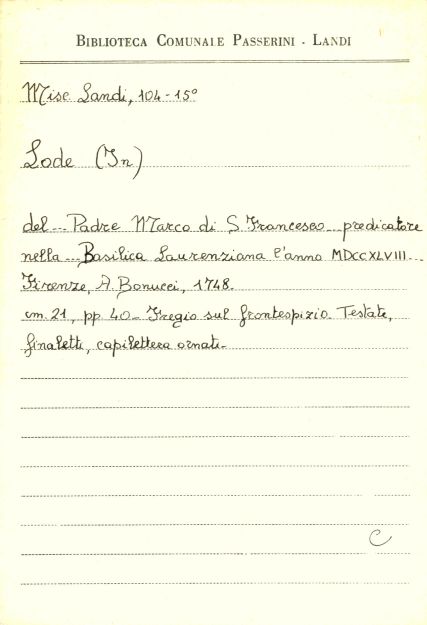 BIBLIOTECA COMUNALE PASSERINI - LANDI
Misc Landi, 104-15°
Lode (In)
del... Padre Marco di S. Francesco... predicatore
nella... Basilica Laurenziana l'anno MDCCXLVIII...
Firenze, A. Bonucci, 1748.
cm. 21, pp. 40- Fregio sul frontespizio. Testate,
finaletti, capilettera ornati-
C